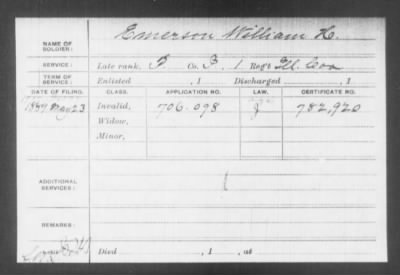 NAME OF SOLDIER: Emerson William H.
SERVICE: Late rank, Co. B, 1 Reg't Ill. Cav
TERM OF SERVICE: Enlisted , 1 Discharged , 1
DATE OF FILING. CLASS. APPLICATION NO. LAW. CERTIFICATE NO.
1889 May 23 Invalid, 706.098 782,920
Widow,
Minor,
ADDITIONAL SERVICES:
REMARKS:
Died , 1 , at